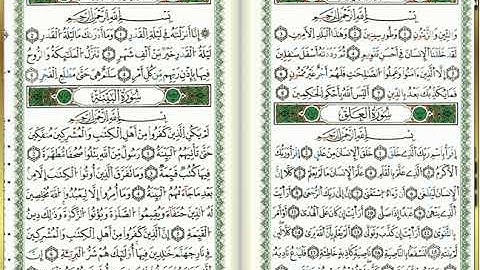 بِسْمِ اللَّهِ الرَّحْمَٰنِ الرَّحِيمِ
وَالتِّينِ وَالزَّيْتُونِ ١ وَطُورِ سِينِينَ ٢ وَهَٰذَا الْبَلَدِ الْأَمِينِ ٣
لَقَدْ خَلَقْنَا الْإِنسَانَ فِي أَحْسَنِ تَقْوِيمٍ ٤ ثُمَّ رَدَدْنَاهُ أَسْفَلَ سَافِلِينَ
٥ إِلَّا الَّذِينَ آمَنُوا وَعَمِلُوا الصَّالِحَاتِ فَلَهُمْ أَجْرٌ غَيْرُ مَمْنُونٍ ٦
فَمَا يُكَذِّبُكَ بَعْدُ بِالدِّينِ ٧ أَلَيْسَ اللَّهُ بِأَحْكَمِ الْحَاكِمِينَ ٨
سُورَةُ الْعَلَقِ
بِسْمِ اللَّهِ الرَّحْمَٰنِ الرَّحِيمِ
اقْرَأْ بِاسْمِ رَبِّكَ الَّذِي خَلَقَ ١ خَلَقَ الْإِنسَانَ مِنْ عَلَقٍ ٢ اقْرَأْ وَرَبُّكَ
الْأَكْرَمُ ٣ الَّذِي عَلَّمَ بِالْقَلَمِ ٤ عَلَّمَ الْإِنسَانَ مَا لَمْ يَعْلَمْ ٥ كَلَّا إِنَّ
الْإِنسَانَ لَيَطْغَىٰ ٦ أَن رَّآهُ اسْتَغْنَىٰ ٧ إِنَّ إِلَىٰ رَبِّكَ الرُّجْعَىٰ ٨ أَرَأَيْتَ
الَّذِي يَنْهَىٰ ٩ عَبْدًا إِذَا صَلَّىٰ ١٠ أَرَأَيْتَ إِن كَانَ عَلَى الْهُدَىٰ ١١
أَوْ أَمَرَ بِالتَّقْوَىٰ ١٢ أَرَأَيْتَ إِن كَذَّبَ وَتَوَلَّىٰ ١٣ أَلَمْ يَعْلَم بِأَنَّ اللَّهَ يَرَىٰ ١٤ كَلَّا لَئِن لَّمْ يَنتَهِ
لَنَسْفَعًا بِالنَّاصِيَةِ ١٥ نَاصِيَةٍ كَاذِبَةٍ خَاطِئَةٍ ١٦ فَلْيَدْعُ نَادِيَهُ
بِسْمِ اللَّهِ الرَّحْمَٰنِ الرَّحِيمِ
إِنَّا أَنزَلْنَاهُ فِي لَيْلَةِ الْقَدْرِ ١ وَمَا أَدْرَاكَ مَا لَيْلَةُ الْقَدْرِ ٢
لَيْلَةُ الْقَدْرِ خَيْرٌ مِّنْ أَلْفِ شَهْرٍ ٣ تَنَزَّلُ الْمَلَائِكَةُ وَالرُّوحُ
فِيهَا بِإِذْنِ رَبِّهِم مِّن كُلِّ أَمْرٍ ٤ سَلَامٌ هِيَ حَتَّىٰ مَطْلَعِ الْفَجْرِ ٥
سُورَةُ الْبَيِّنَةِ
بِسْمِ اللَّهِ الرَّحْمَٰنِ الرَّحِيمِ
لَمْ يَكُنِ الَّذِينَ كَفَرُوا مِنْ أَهْلِ الْكِتَابِ وَالْمُشْرِكِينَ مُنفَكِّينَ
حَتَّىٰ تَأْتِيَهُمُ الْبَيِّنَةُ ١ رَسُولٌ مِّنَ اللَّهِ يَتْلُو صُحُفًا مُّطَهَّرَةً ٢
فِيهَا كُتُبٌ قَيِّمَةٌ ٣ وَمَا تَفَرَّقَ الَّذِينَ أُوتُوا الْكِتَابَ إِلَّا مِن
بَعْدِ مَا جَاءَتْهُمُ الْبَيِّنَةُ ٤ وَمَا أُمِرُوا إِلَّا لِيَعْبُدُوا اللَّهَ مُخْلِصِينَ
لَهُ الدِّينَ حُنَفَاءَ وَيُقِيمُوا الصَّلَاةَ وَيُؤْتُوا الزَّكَاةَ وَذَٰلِكَ دِينُ
الْقَيِّمَةِ ٥ إِنَّ الَّذِينَ كَفَرُوا مِنْ أَهْلِ الْكِتَابِ وَالْمُشْرِكِينَ
فِي نَارِ جَهَنَّمَ خَالِدِينَ فِيهَا أُولَٰئِكَ هُمْ شَرُّ الْبَرِيَّةِ ٦ إِنَّ